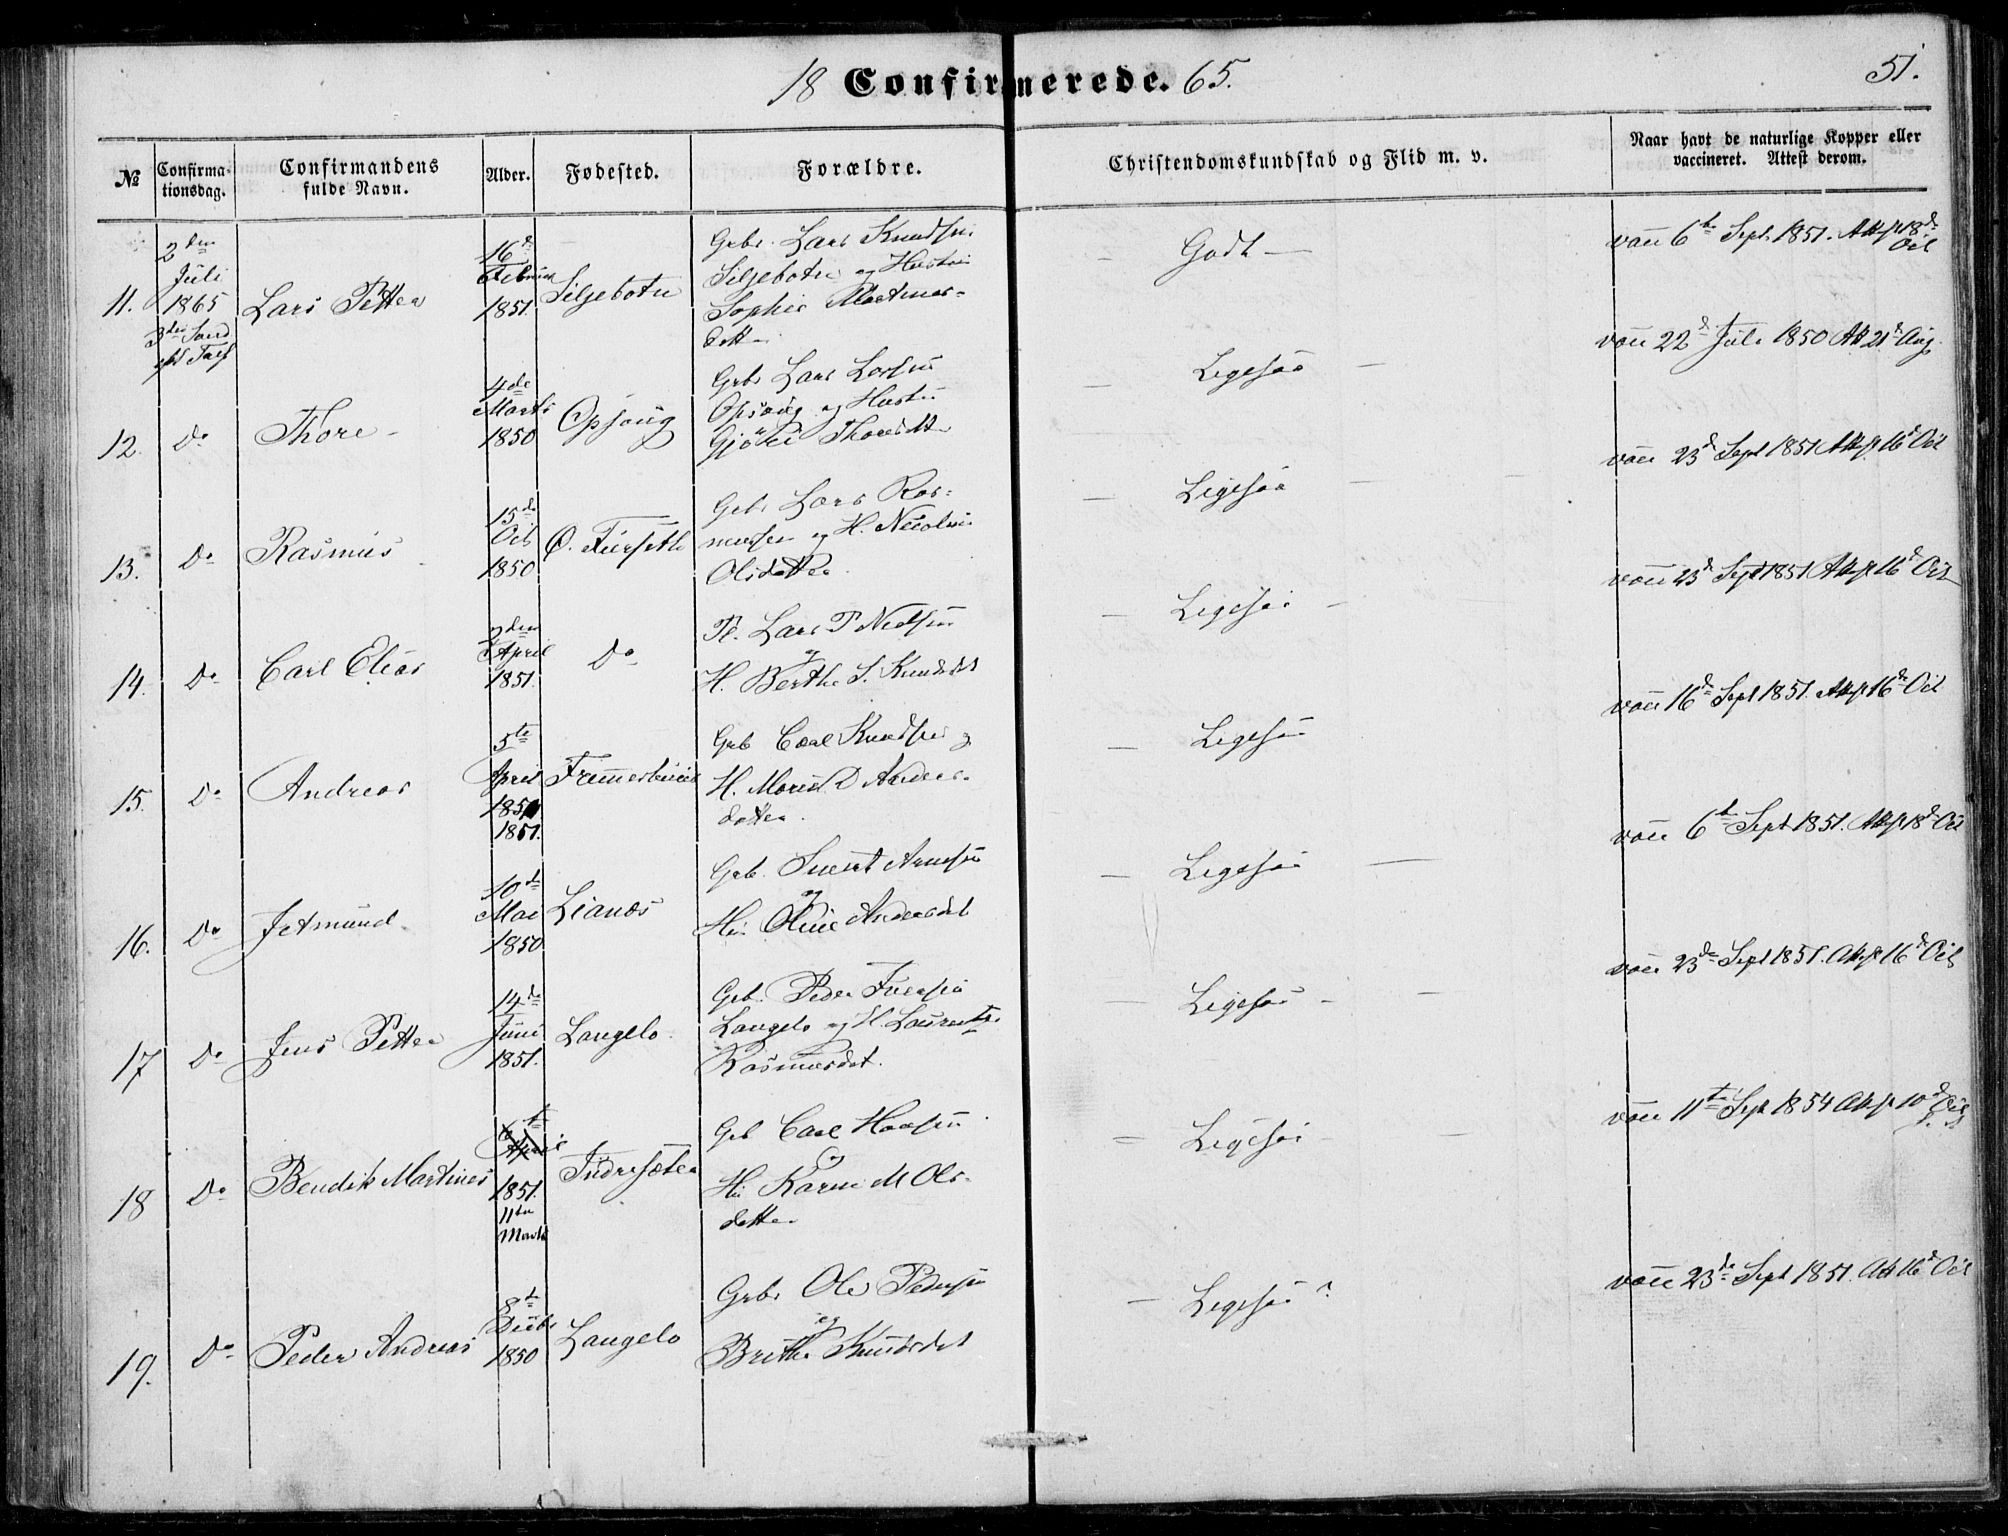 18 Confirmerede. 65.
51.
No
Confirma-
tionsdag.
Confirmandens
fulde Navn.
Alder.
Fødested.
Forældre.
Christendomskundskab og Flid m. v.
Naar havt de naturlige Kopper eller
vaccineret. Attest derom.
11.
2den
Juli
1865
3die Sønd
Lars Petter
16d
Februar
1851.
Siljebotn
Grbr. Lars Knudsen
Siljebotn og Hustru
Sophie
dtt
Godt —
vacc 6t Sept 1851. Att 18d
Oct
12. Do Thore -
4de
Marts
1850
Opsaug
Grbr Lars Larsen
Opsaug og Hustru
Thoresdtt
— Ligesaa —
vacc 22d Juli 1850 Att 21d Aug
13. Do Rasmus
15d
Oct
1850
Ø. Furseth
Grbr Lars Ras-
mussen og H. Nicoline
Olsdatter
— Ligesaa —
vacc 23d Sept 1851 Att 16d Oct
14. Do Carl Elias
April
1851.
Do
Lars P Nedsen
og
H. Berthe S. Knudsdt
— Ligesaa —
vacc 23d Sept 1851 Att 16d Oct
15. Do Andreas
5te
April
1851.
Grb Carl Knudsen og
H. Maren D Anders-
datter.
— Ligesaa
vacc 16d Sept 1851. Att 16d Oct
16. Do Jetmund
10d
Mai
1850
Lianæs
Grb. Sivert Arnesen
og
Hu Oline Andersdt
— Ligesaa —
vacc 6t Sept 1851. Att 18d Oct
17 Do Jens Petter
14d
Juni
1851.
Langelo
Grb. Peder Iversen
Langelo og H. Laurentse
Rasmusdt.
— Ligesaa — —
vacc 23de Sept 1851. Att 16d Oct
18 Do Bendik Martinus
April
1851.
11te
Marts
Indresæter
Grb Carl Hansen
og
Hu Karen M Ols-
datter
— Ligesaa — —
vacc 11te Sept 1854 Att 10d Oct
19. Do Peder Andreas
8d
Decbr
1850
Langelo
Grbr Ole Pedersen
og
Brithe Knudsdt
— Ligesaa ?
vacc 23de Sept 1851. Att 16d Oct